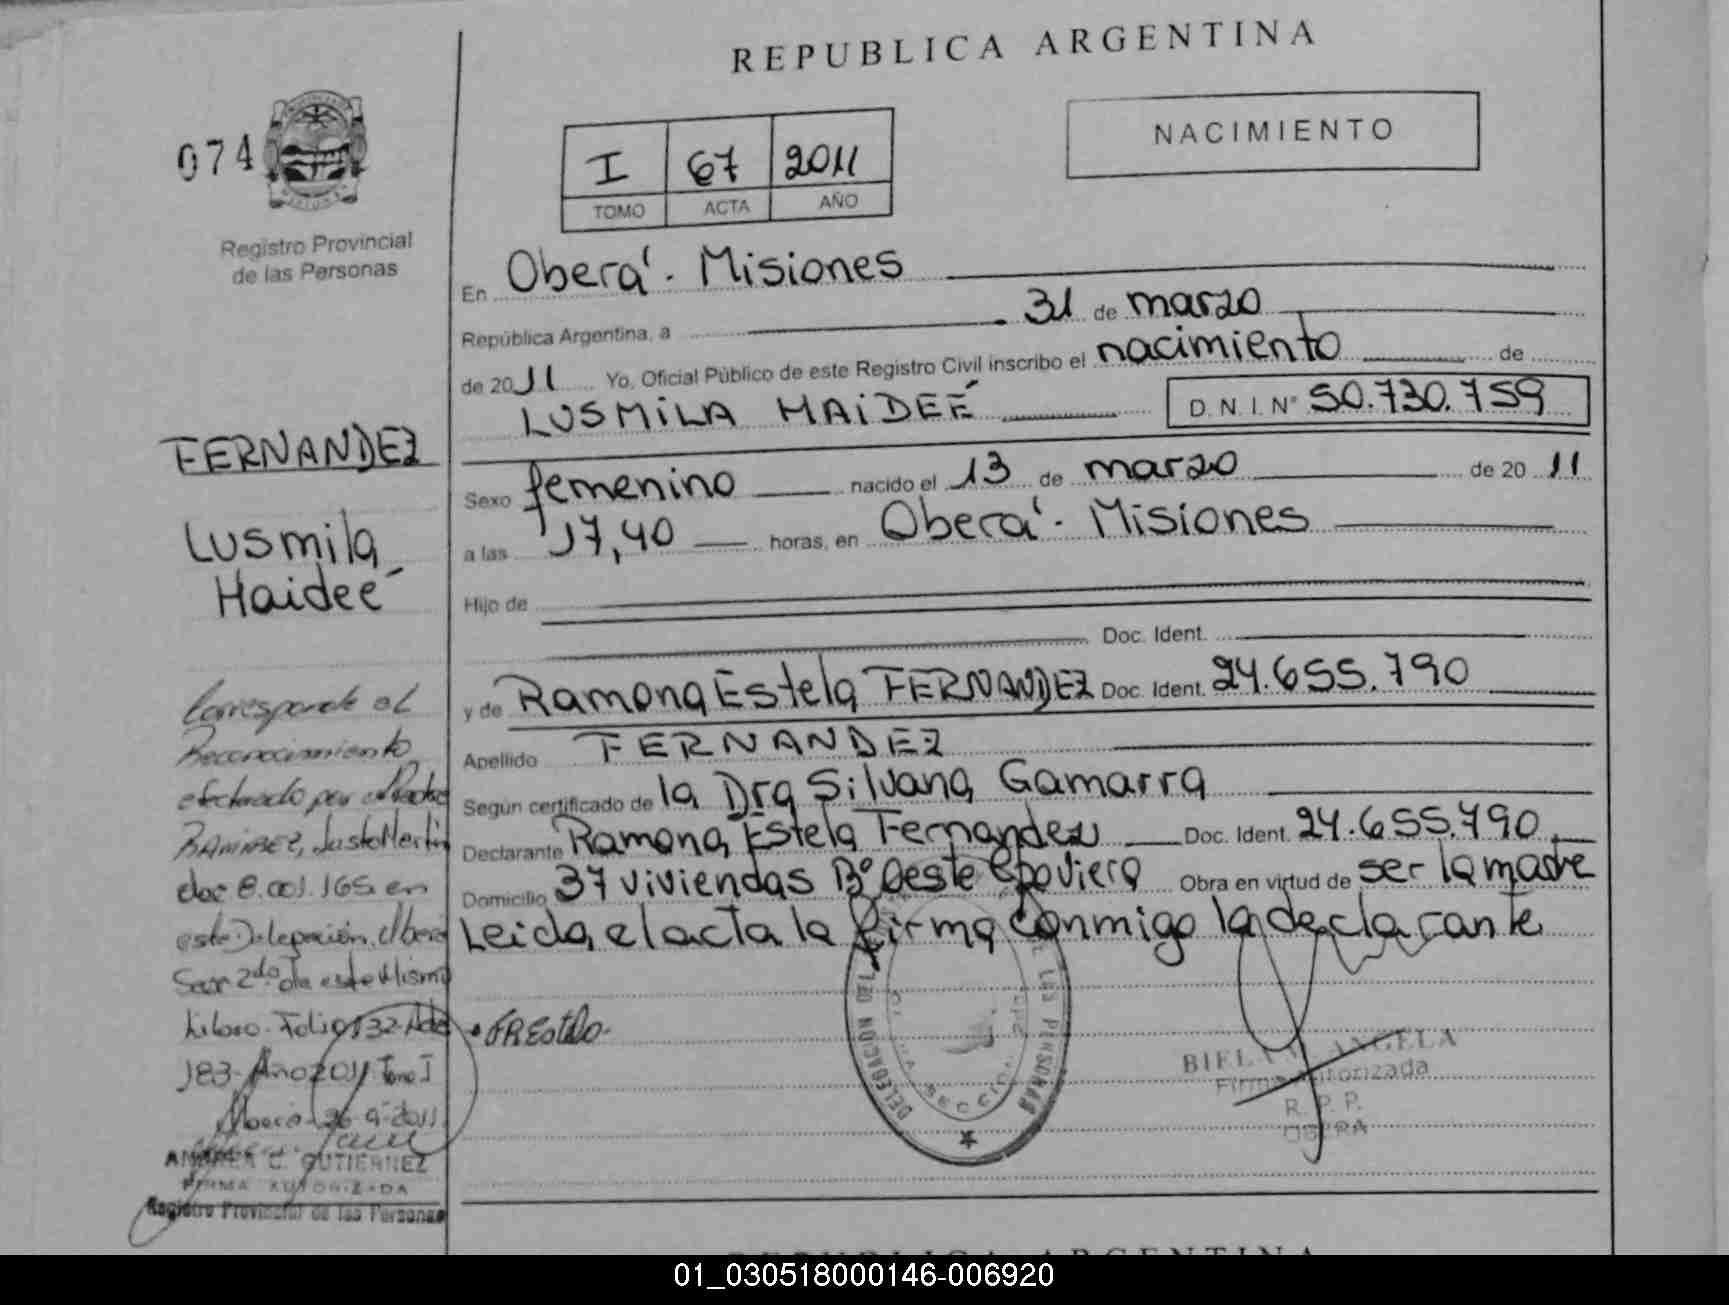 REPUBLICA ARGENTINA
074
Registro Provincial
de las Personas
I 67 2011
TOMO ACTA AÑO
NACIMIENTO
En Oberá - Misiones
República Argentina, a 31 de marzo
de 2011 Yo, Oficial Público de este Registro Civil inscribo el nacimiento de
LUSMILA HAIDEÉ D.N.I. N° 50.730.759
FERNANDEZ
Lusmila
Haideé
Sexo femenino nacido el 13 de marzo de 2011
a las 17,40 horas, en Oberá - Misiones
Hijo de
Doc. Ident.
y de Ramona Estela FERNANDEZ Doc. Ident. 24.655.790
Apellido FERNANDEZ
Según certificado de la Dra Silvana Gamarra
Declarante Ramona Estela Fernandez Doc. Ident. 24.655.790
Domicilio 37 viviendas B° Oeste Obra en virtud de ser la madre
Leida el acta la firma conmigo la declarante
Corresponde al
Reconocimiento
efectuado por el Padre
RAMIREZ, Justo Martin
doc 8.001.165 en
esta Delegación Oberá
Secc 2da de este Mismo
Libro - Folio 132 - Acta
183 - Año 2011 Tomo I
Oberá 26-9-2011
ANDREA C. GUTIERREZ
FIRMA AUTORIZADA
Registro Provincial de las Personas
DELEGACION
SECCION
LAS PERSONAS
ANGELA
Firma Autorizada
R. P. P.
OBERA
REPUBLICA ARGENTINA
01_030518000146-006920